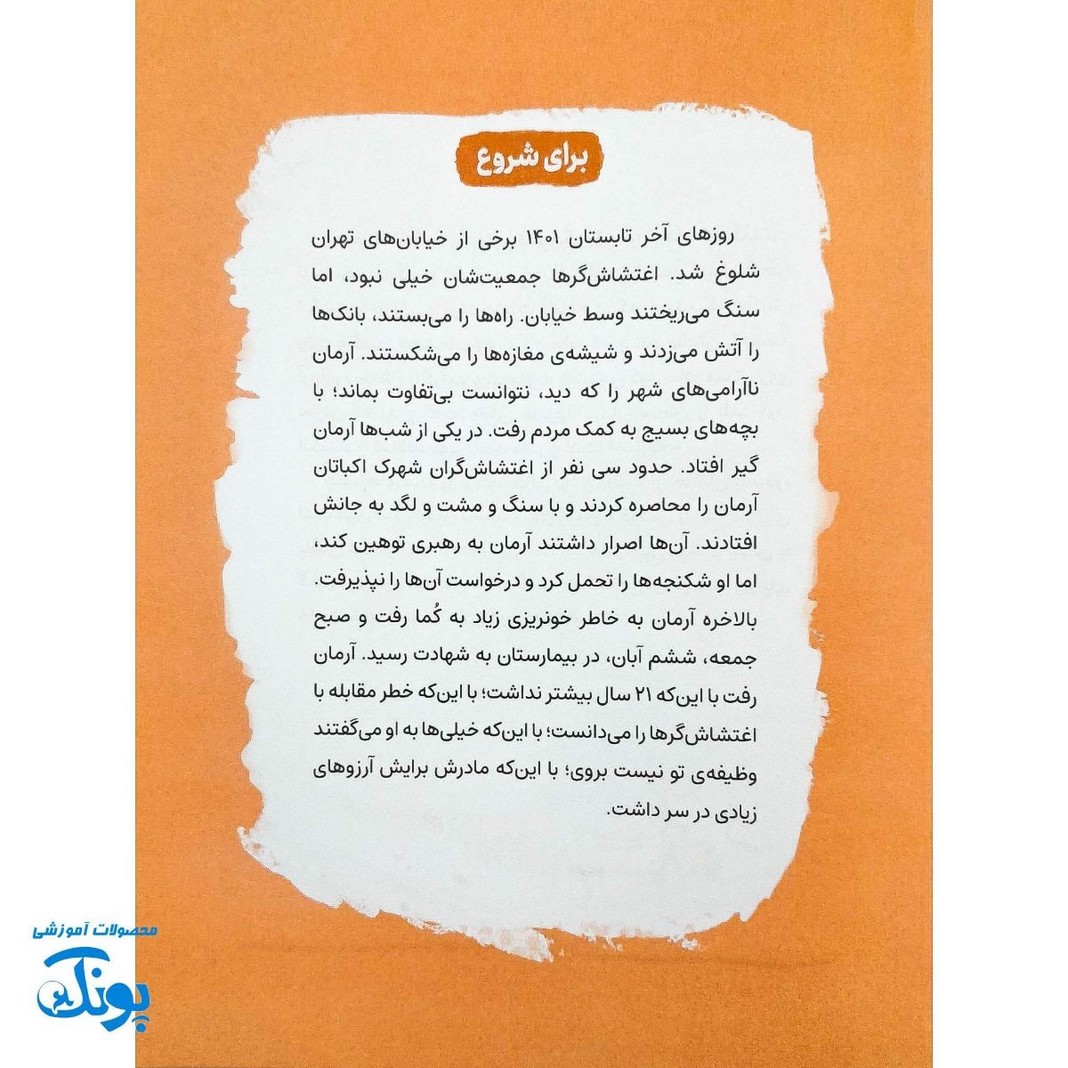 برای شروع
روزهای آخر تابستان ۱۴۰۱ برخی از خیابان‌های تهران
شلوغ شد. اغتشاش‌گرها جمعیت‌شان خیلی نبود، اما
سنگ می‌ریختند وسط خیابان. راه‌ها را می‌بستند، بانک‌ها
را آتش می‌زدند و شیشه‌ی مغازه‌ها را می‌شکستند. آرمان
ناآرامی‌های شهر را که دید، نتوانست بی‌تفاوت بماند؛ با
بچه‌های بسیج به کمک مردم رفت. در یکی از شب‌ها آرمان
گیر افتاد. حدود سی نفر از اغتشاش‌گران شهرک اکباتان
آرمان را محاصره کردند و با سنگ و مشت و لگد به جانش
افتادند. آن‌ها اصرار داشتند آرمان به رهبری توهین کند،
اما او شکنجه‌ها را تحمل کرد و درخواست آن‌ها را نپذیرفت.
بالاخره آرمان به خاطر خونریزی زیاد به کُما رفت و صبح
جمعه، ششم آبان، در بیمارستان به شهادت رسید. آرمان
رفت با این‌که ۲۱ سال بیشتر نداشت؛ با این‌که خطر مقابله با
اغتشاش‌گرها را می‌دانست؛ با این‌که خیلی‌ها به او می‌گفتند
وظیفه‌ی تو نیست بروی؛ با این‌که مادرش برایش آرزوهای
زیادی در سر داشت.
محصولات آموزشی
پونک